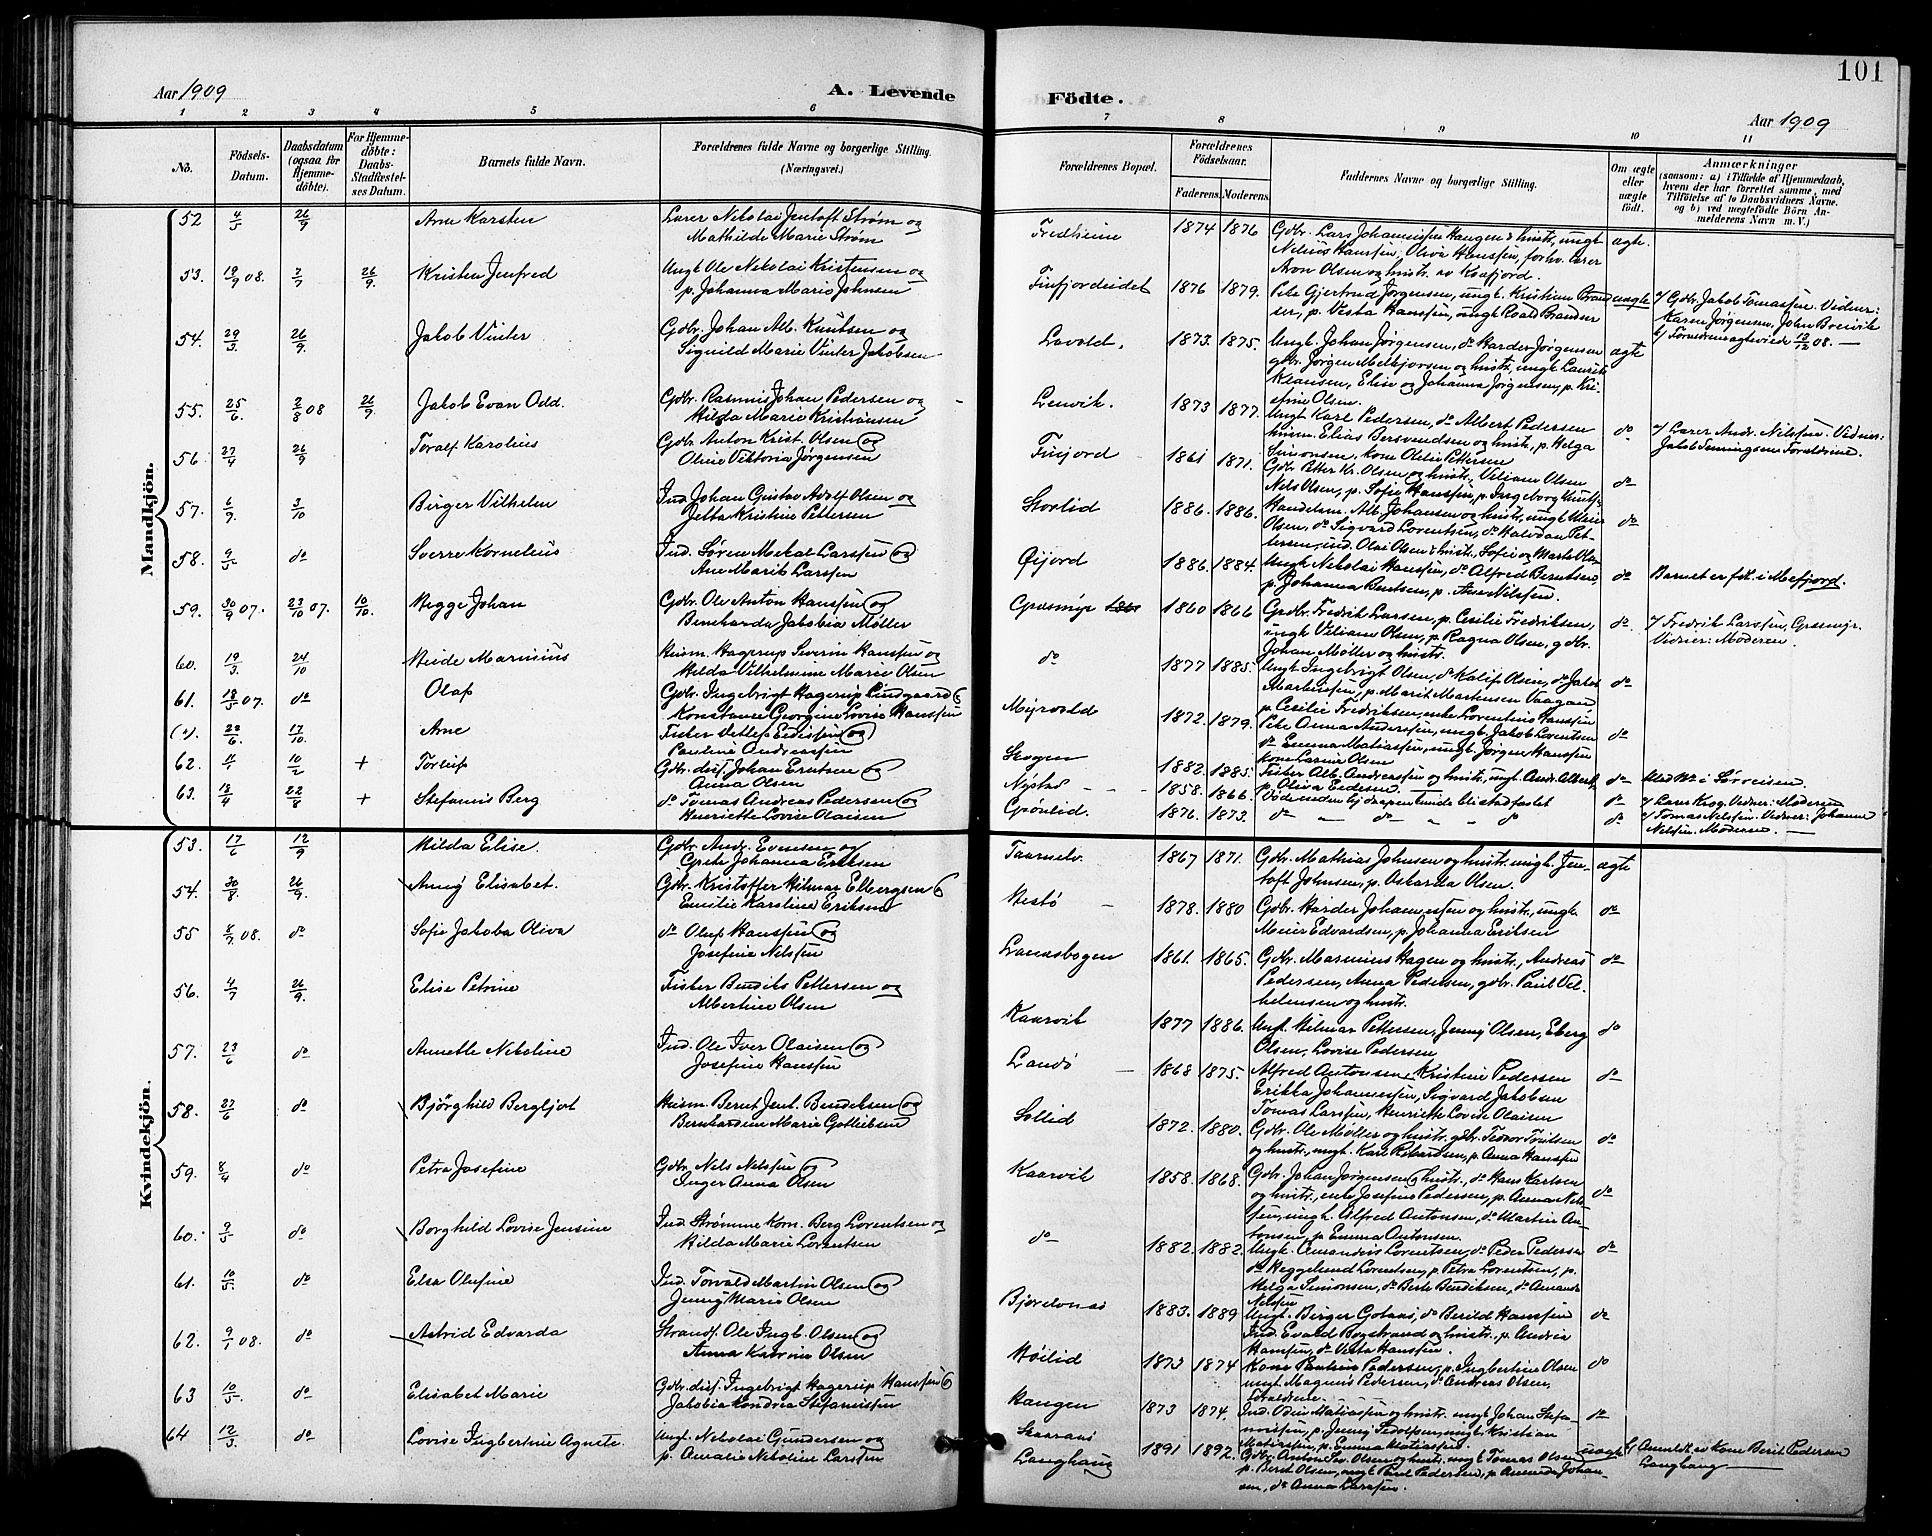 101
Aar 1909
A. Levende
Födte.
Aar 1909
1 2 3 4 5 6 7 8 9 10 11
No.
Födsels-Datum.
Daabsdatum (ogsaa for Hjemme-döbte).
For Hjemme-döbte: Daabs-Stadfæstel-ses Datum.
Barnets fulde Navn.
Forældrenes fulde Navne og borgerlige Stilling.
(Næringsvei.)
Forældrenes Bopæl.
Forældrenes Födselsaar.
Faderens. Moderens.
Faddernes Navne og borgerlige Stilling.
Om ægte eller uægte födt.
Anmærkninger
(saasom: a) i Tilfælde af Hjemmedaab,
hvem der har forrettet samme, med
Tilföielse af to Daabsvidners Navne.
og b) ved uægtefödte Börn An-
melderens Navn m. V.)
Mandkjön.
52 4/5 26/9 Arne Karsten
Lærer Nikolai Jentoft Strøm og
Mathilde Marie Strøm
Fredheim 1874 1876
Gdbr. Lars Johannessen Haugen & hustr., ungk.
Nelius Hanssen, Oliva Hanssen, forhv. lærer
Aron Olsen og hustr. av Kaafjord.
ægte.
53. 19/9 08. 2/7 26/9. Kristen Jenfred
Ungk. Ole Nikolai Kristensen og
p. Johanna Marie Johnsen
Finfjordeidet 1876 1879.
Pike Gjertrud Jørgensen, ungk. Kristian Brand
ser, p. Vesta Hanssen, ungk. Roald Brandser
uægte
a/ Gdbr. Jakob Tomassen. Vidner:
Karen Jørgensen, John Breivik
b/ Forældrene ægteviede 10/12 08.
54. 29/3. 26/9. Jakob Vinter
Gdbr. Johan Alb. Knutsen og
Signild Marie Vinter Jakobsen
Lavold. 1873. 1875.
Ungk. Johan Jørgensen, do Harder Jørgensen
gbr. Jørgen Melkjorsen og hustr., ungk. Laurits
Klausen, Elise og Johanna Jørgensen, p. Kri-
stine Olsen.
ægte
55. 25/6. 2/8 08 26/9. Jakob Evan Odd.
Gdbr. Rasmus Johan Pedersen og
Hilda Marie Kristiansen
Lenvik. 1873 1877.
Ungk. Karl Pedersen, do Albert Pedersen
husm. Elias Bersvendsen og hustr., p. Helga
Simonsen, kone Olelie Pettersen
do
a/ Lærer Andr. Nilssen. Vidner:
Jakob Henningsen Forældrene.
56 27/4 26/9 Toralf Karolius
Gdbr. Anton Krist. Olsen og
Oline Viktoria Jørgensen
Finjord 1861 1871.
Gdbr. Petter Kr. Olsen og hustr., Viliam Olsen
Nels Olsen, p. Sofie Hanssen, p. Ingeborg
do
57. 6/9. 3/10 Birger Vilhelm
Ind. Johan Gustav Adolf Olsen og
Jetta Kristine Pettersen
Storlid 1886. 1886.
Handelsm. Alb. Johansen og hustr., ungk.
Olsen, do Sigvard Lorentsen, do Halvdan Pet-
tersen, ind. Olai Olsen & hustr., Sofie og Marte Olsen
do
58. 9/5 do Sverre Kornelius
Ind. Søren Mekal Larssen og
Ane Marit Larssen
Øijord 1886. 1884.
Ungk. Nekolai Hanssen, do Alfred Berntsen,
p. Johanna Bentsen, p. Ane Nilssen.
do
Barnet er født i Mefjord.
59. 30/9 07. 23/10 07. 10/10. Hegge Johan
Gdbr. Ole Anton Hanssen og
Bernharda Jakobia Møller
Græsmyr 1860 1866
Gdbr. Fredrik Larssen, p. Cecilie Fredriksen,
ungk. Viliam Olsen, p. Ragna Olsen, gdbr.
Johan Møller og hustr.
do
a/ Fredrik Larssen, Græsmyr.
Vidner: Moderen
60. 19/3 24/10 Heide Marinius
Husm. Hagerup Severin Hanssen og
Hilda Vilhelmine Marie Olsen
do 1877 1885.
Ungk. Ingebrigt Olsen, do Kalif Olsen, do Jakob
Martinssen, p. Marit Martinsen Vaagan
do
61. 18/5 07. do Olaf
Gdbr. Ingebrigt Hagerup Lindgaard &
Konstanse Georgine Lovise Hanssen
Myrvold 1872. 1879.
p. Cecilie Fredriksen, enke Lorentine Hanssen
Pike Anna Andersen, ungk. Jakob Lorentsen
do
17/10. Arne
Fisker Detlef Eidissen og
Pauline Andreassen
Skogen 1882. 1885.
do Emma Matiassen, ungk. Jørgen Hanssen
kone Lasine Olsen
62. 10/2 + Torleif
Gdbr. dis. Johan Erntsen og
Anna Olsen
Nystad 1858. 1866.
Fisker Alb. Andreassen og hustr., ungk. Andr. Albert,
p. Oliva Eidesen
do
63. 13/4 22/8 + Stefanus Berg
do Tomas Andreas Pedersen og
Henriette Lovise Olaisen
Grønlid. 1876. 1873.
do do do
do
a/ Lars Krog. Vidner: Moderen
a/ Tomas Nelssen. Vidner: Johanne
Nelssen. Moderen.
Kvindekjön.
53. 17/6 12/9 Hilda Elise.
Gdbr. Andr. Evensen og
Grete Johanna Eriksen
Taarnelv. 1867 1871.
Gdbr. Mathias Johnsen og hustr. ungk. Jen-
toft Johnsen, p. Oskarda Olsen.
ægte
54. 30/8. 26/9. Anny Elisabet.
Gdbr. Kristoffer Hilmar Elbergsen &
Emilie Karoline Eriksen
Hestø 1878. 1880
Gdbr. Harder Johannessen og hustr., ungk.
Meier Edvardsen, p. Johanna Eriksen
do
55 8/7 08. do Sofie Jakoba Oliva
do Oluf Hanssen og
Josefine Nilssen
Lanesbogen 1861. 1865.
Gdbr. Marinius Hagen og hustr., Andreas
Pedersen, Anna Pedersen, gdbr. Paul Vil-
helmsen og hustr.
do
56. 4/7 26/9. Elise Petrine
Fisker Bendiks Pettersen og
Albertine Olsen
Kaarvik 1877 1886.
Ungk. Hilmar Pettersen, Jenny Olsen, Eberg
Olsen, Lovise Pedersen
do
57. 23/6 do Annette Nekoline
Ind. Ole Iver Olaisen og
Josefine Hanssen
Landø 1868 1875.
Alfred Antonsen, Kristine Pedersen
Erikka Johannessen, Sigvard Jakobsen
Tomas Larssen, Henriette Lovise Olaisen
do
58. 27/6 do Bjørghild Bergljot
Husm. Bernt Jent. Bendiksen og
Bernhardine Marie Gottliebsen
Sollid 1872. 1880.
Gdbr. Ole Møller og hustr., gdbr. Teodor Tønsen
og hustr., ungk. Karl Rikardsen, p. Anna Hanssen
do
59. 8/4 do Petra Josefine
Gdbr. Nels Nelssen og
Inger Anna Olsen
Kaarvik 1858. 1868.
Gdbr. Johan Jørgensen & hustr., do Hans Karlsen
og hustr., enke Josefine Pedersen, p. Anna Nils
sen, ungk. Alfred Antonsen, do Martin An-
tonsen, p. Emma Antonsen.
do
60. 9/5 do Borghild Lovise Jensine
Ind. Strømme Korn. Berg Lorentsen og
Hilda Marie Lorentsen
do 1882. 1882.
Ungk. Amandus Lorentsen, do Peder Pedersen
do Heggelund Lorentsen, p. Petra Lorentsen, p.
Helga Simonsen, do Berte Bendiksen, do Amanda
Nelssen
do
61. 10/5. do Elsa Olufine
Ind. Torvald Martin Olsen og
Jenny Marie Olsen
Bjorelvnes 1883. 1889
Ungk. Birger Gotaas, do Berild Hanssen
Ind. Evald Bogstrand og hustr., p. Andrea
Hanssen, do Vesta Hanssen.
do
62. 9/1 08. do Astrid Edvarda
Strands. Ole Ingb. Olsen og
Anna Katrine Olsen
Høilid 1873 1874
Kone Pauline Pedersen, p. Ingbertine Olsen
ungk. Magnus Pedersen, do Andreas Olsen,
Forældrene.
do
63 10/5. do Elisabet Marie
Gdbr. dis. Ingebrigt Hagerup Hanssen &
Jakobia Kondrea Stefanussen
Haugen 1873 1874.
Ind. Odin Matiassen og hustr. ungk. Johan Stefa-
nussen, p. Jenny Tedolfsen, ungk. Kristian
Matiassen, p. Emma Matiassen.
do
64 12/3. do Lovise Ingbertine Agnete.
Ungk. Nekolai Gundersen og
p. Amalie Nekoline Larssen
Skaaraas
Langhaug 1891 1892.
Gdbr. Anton Olsen og hustr. ungk. Tomas Olsen
p. Berit Olsen, ungk. Paul Pedersen, p. Amanda Johan-
sen, do Anna Larssen.
uægte
b/ Anmeldt av kone Berit Pedersen
Langhaug